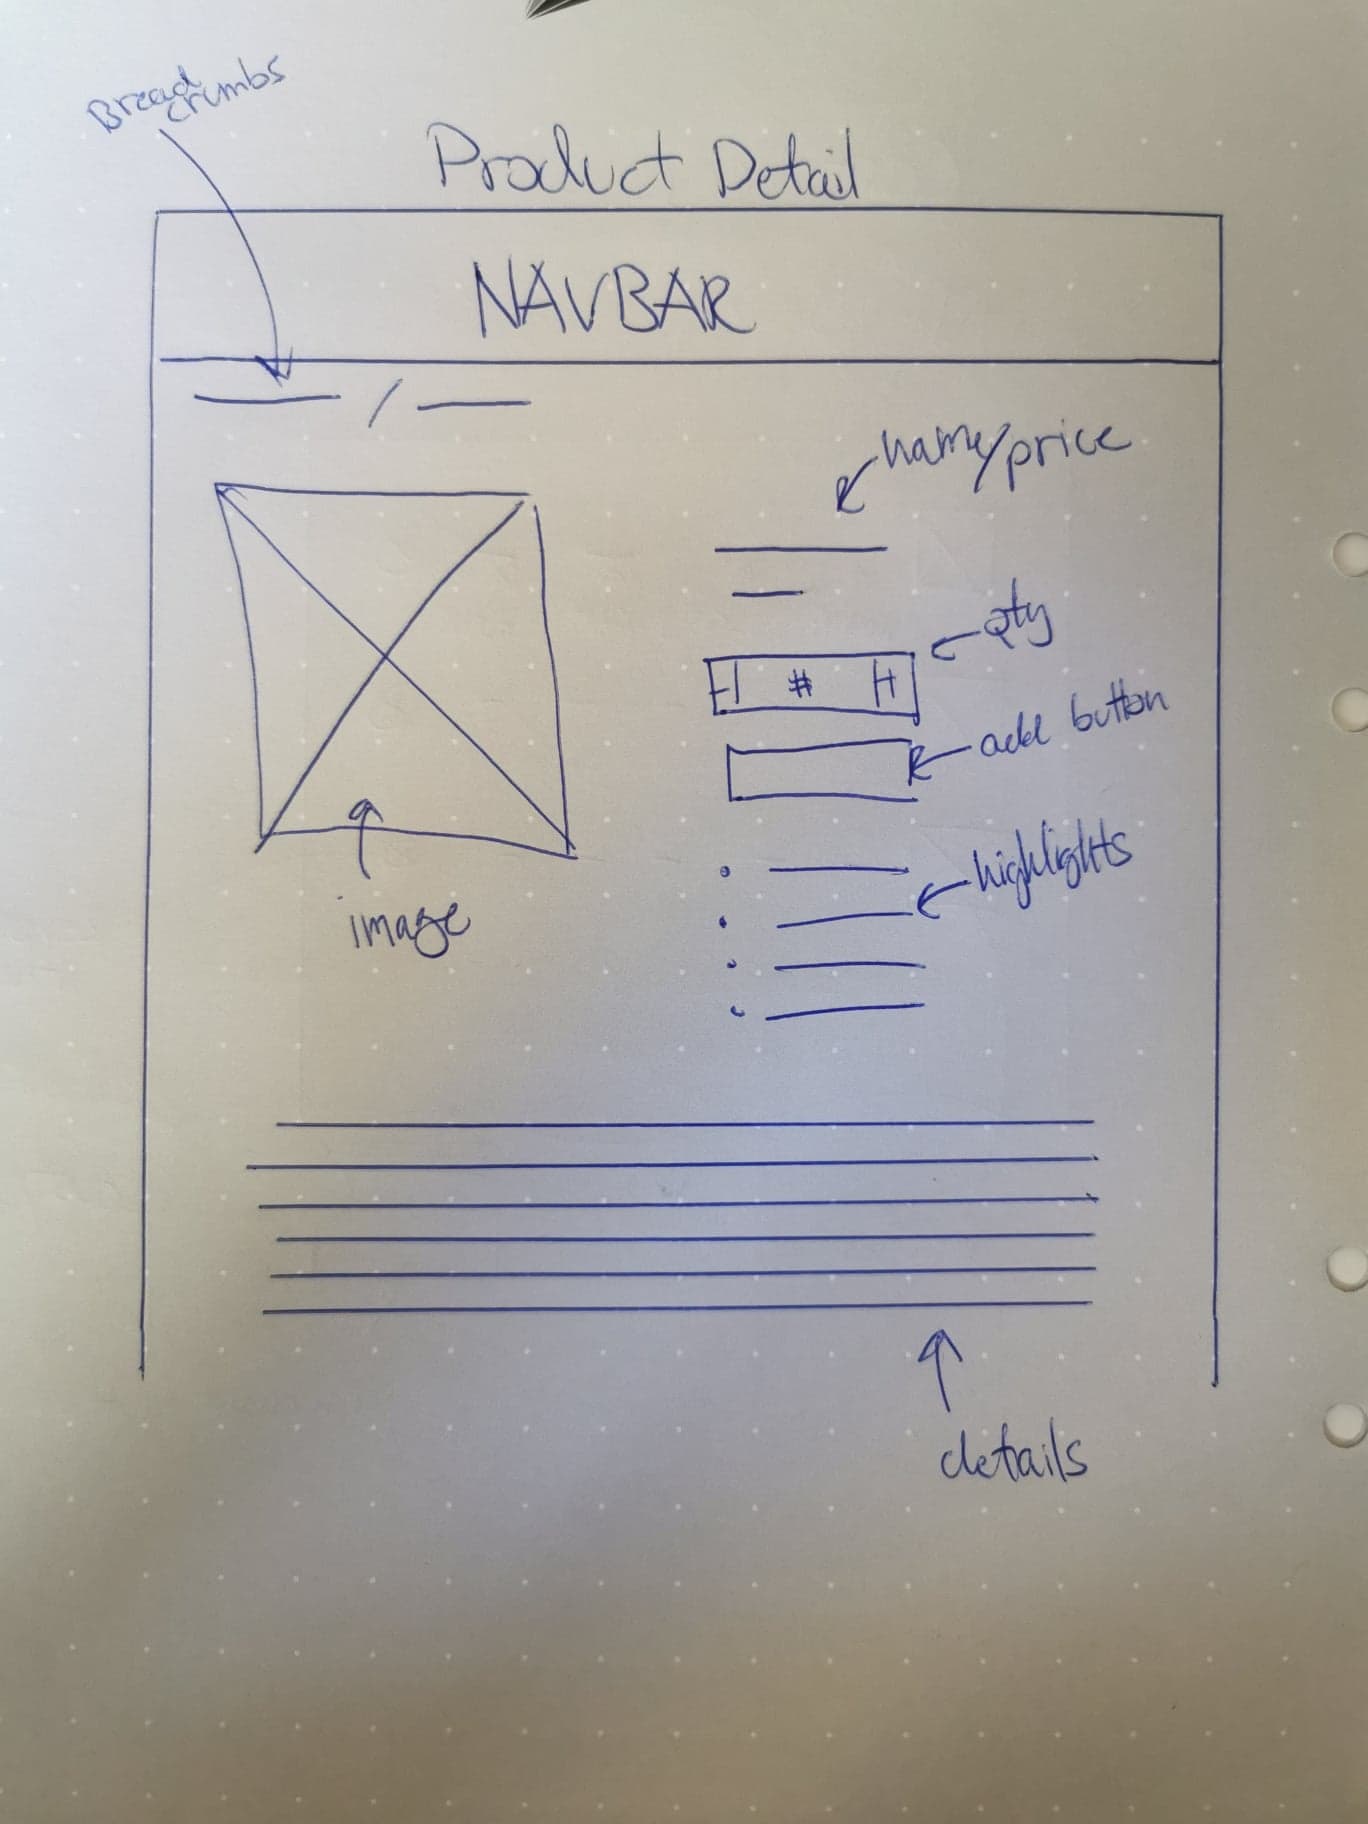 Bread
crumbs
Product Detail
NAVBAR
/
name/price
Qty
- # +
add button
highlights
image
details